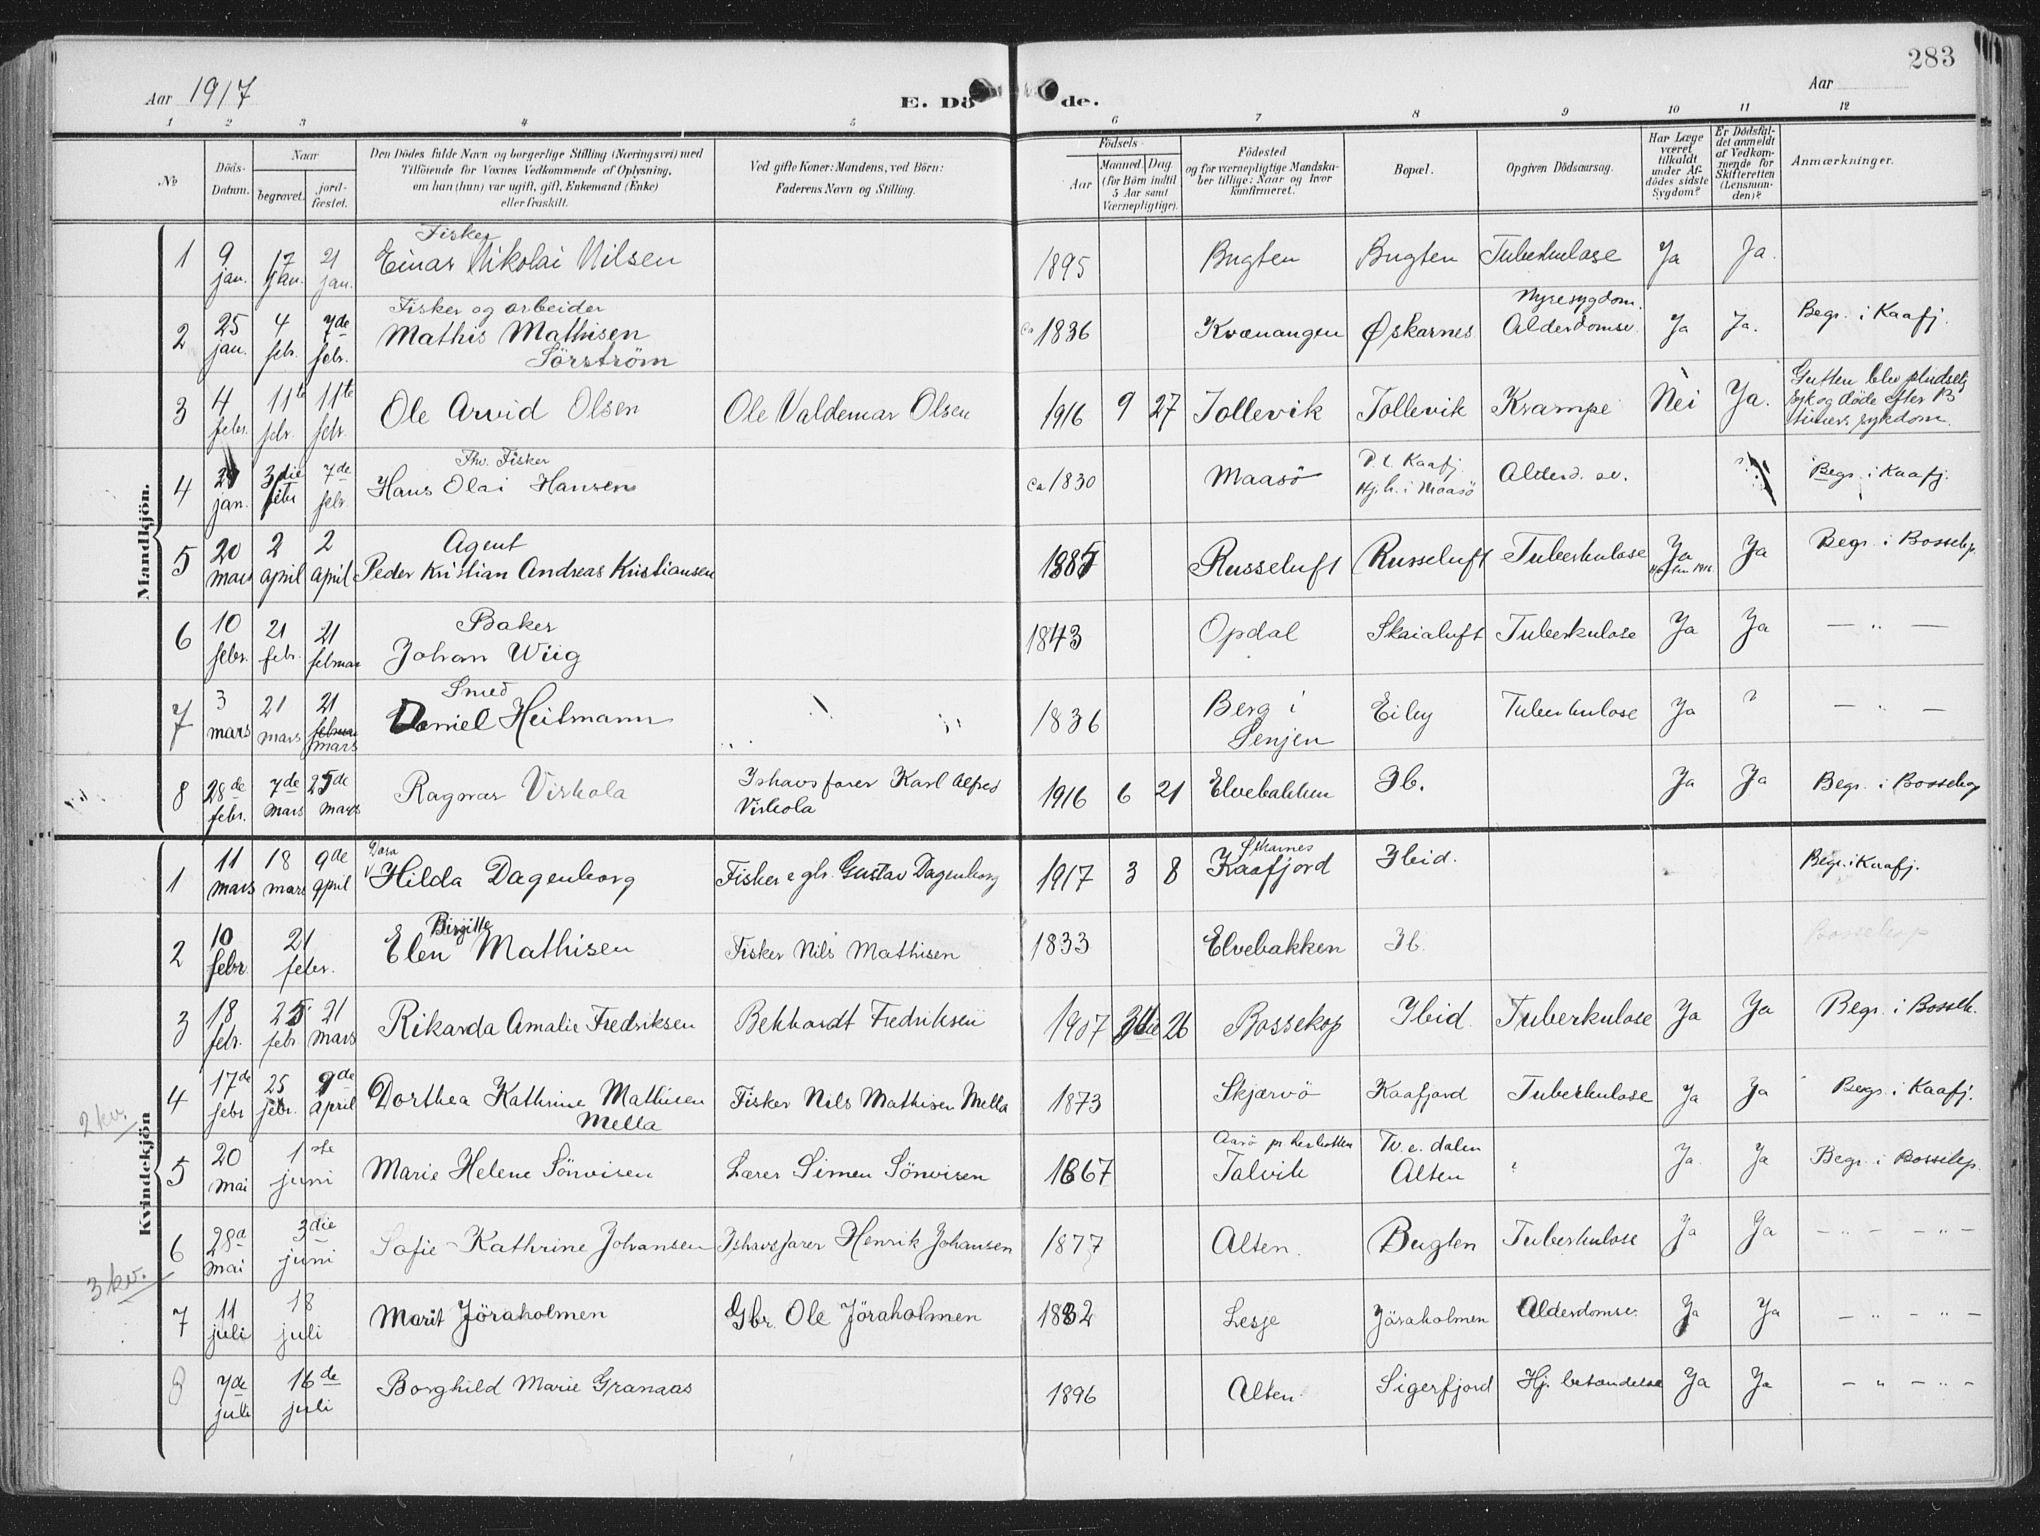 283
Aar 1917
E. Dö de.
Aar
1 2 3 4 5 6 7 8 9 10 11 12
No
Döds-Datum.
Naar
begravet.
jord-fæstet.
Den Dödes fulde Navn og borgerlige Stilling (Næringsvei) med
Tilföiende for Voxnes Vedkommende af Oplysning,
om han (hun) var ugift, gift, Enkemand (Enke)
eller fraskilt.
Ved gifte Koner: Mandens, ved Börn:
Faderens Navn og Stilling.
Födsels-
Aar
Maaned. Dag.
(for Börn indtil
5 Aar samt
Værnepligtige).
Födested
og for værnepligtige Mandska-
ber tillige: Naar og hvor
konfirmeret.
Bopæl.
Opgiven Dödsaarsag.
Har Læge
været
tilkaldt
under Af-
dödes sidste
Sygdom?
Er Dödsfal-
det anmeldt
af Vedkom-
mende for
Skifteretten
(Lensman-
den)?
Anmærkninger.
Mandkjön.
1 9 jan. 17 jan. 21 jan. Fisker Einar Nikolai Nilsen 1895 Bugten Bugten Tuberkulose Ja Ja.
2 25 jan. 4 febr. 7de febr. Fisker og arbeider Mathis Mathisen Sörström ca 1836 Kvænangen Øskarnes Nyresygdom. Alderdomsv. Ja Ja. Begr. i Kaafj.
3 4 febr. 11te febr. 11te febr. Ole Arvid Olsen Ole Valdemar Olsen 1916 9 27 Tollevik Tollevik Krampe Nei Ja. Gutten blev pludselig syk og døde efter timers sykdom.
4 jan. 3die febr 7de febr. Fhv. Fisker Hans Olai Hansen ca 1830 Maasö P. t. Kaafj. Hj.h. i Maasö Alderd. sv. Begr. i Kaafj.
5 20 mars 2 april 2 april Agent Peder Kristian Andreas Kristiansen 1885 Russeluft Russeluft Tuberkulose Ja Ja Begr. i Bossekp.
6 10 febr. 21 febr. 21 februar Baker Johan Wiig 1843 Opdal Skaialuft Tuberkulose Ja Ja — " —
7 3 mars 21 mars 21 februar mars Smed Daniel Heitmann 1836 Berg i Senjen Eiby Tuberkulose Ja ? — " —
8 28de febr. 7de mars 25de mars Ragnar Virkola Ishavsfarer Karl Alfred Virkola 1916 6 21 Elvebakken Ib. Ja Ja Begr. i Bossekop
Kvindekjön
1 11 mars 18 mars 9de april Dora Hilda Dagenborg Fisker e gbr. Gustav Dagenborg 1917 3 8 Kaafjord Ibid. Begr. i Kaafj.
2 10 febr. 21 febr. Elen Birgitte Mathisen Fisker Nils Mathisen 1833 Elvebakken Ib. Bossekop
3 18 febr. 25 febr 21 mars Rikarda Amalie Fredriksen Bekhardt Fredriksen 1907 26 Bossekop Ibid. Tuberkulose Ja Ja Begr. i Bossek.
2 kv.
4 17de febr 25 febr. 9de april Dorthea Kathrine Mathisen Mella Fisker Nils Mathisen Mella 1873 Skjærvö Kaafjord Tuberkulose Ja Ja Begr. i Kaafj.
5 20 mai 1ste juni Marie Helene Sönvisen Lærer Simen Sönvisen 1867 Talvik Tv. e. dalen Alten Ja Ja Begr. i Bossekp.
6 28d mai 3die juni Sofie Kathrine Johansen Ishavsfarer Henrik Johansen 1877 Alten. Bugten Tuberkulose Ja Ja — " — " —
3 kv.
7 11 juli 18 juli Marit Jöraholmen Gbr. Ole Jöraholmen 1832 Lesje Jöraholmen Alderdomsv. Ja Ja — " — " —
8 7de juli 16de juli Borghild Marie Granaas 1896 Alten Sigerfjord Hj. betændelse Ja Ja — " — " —